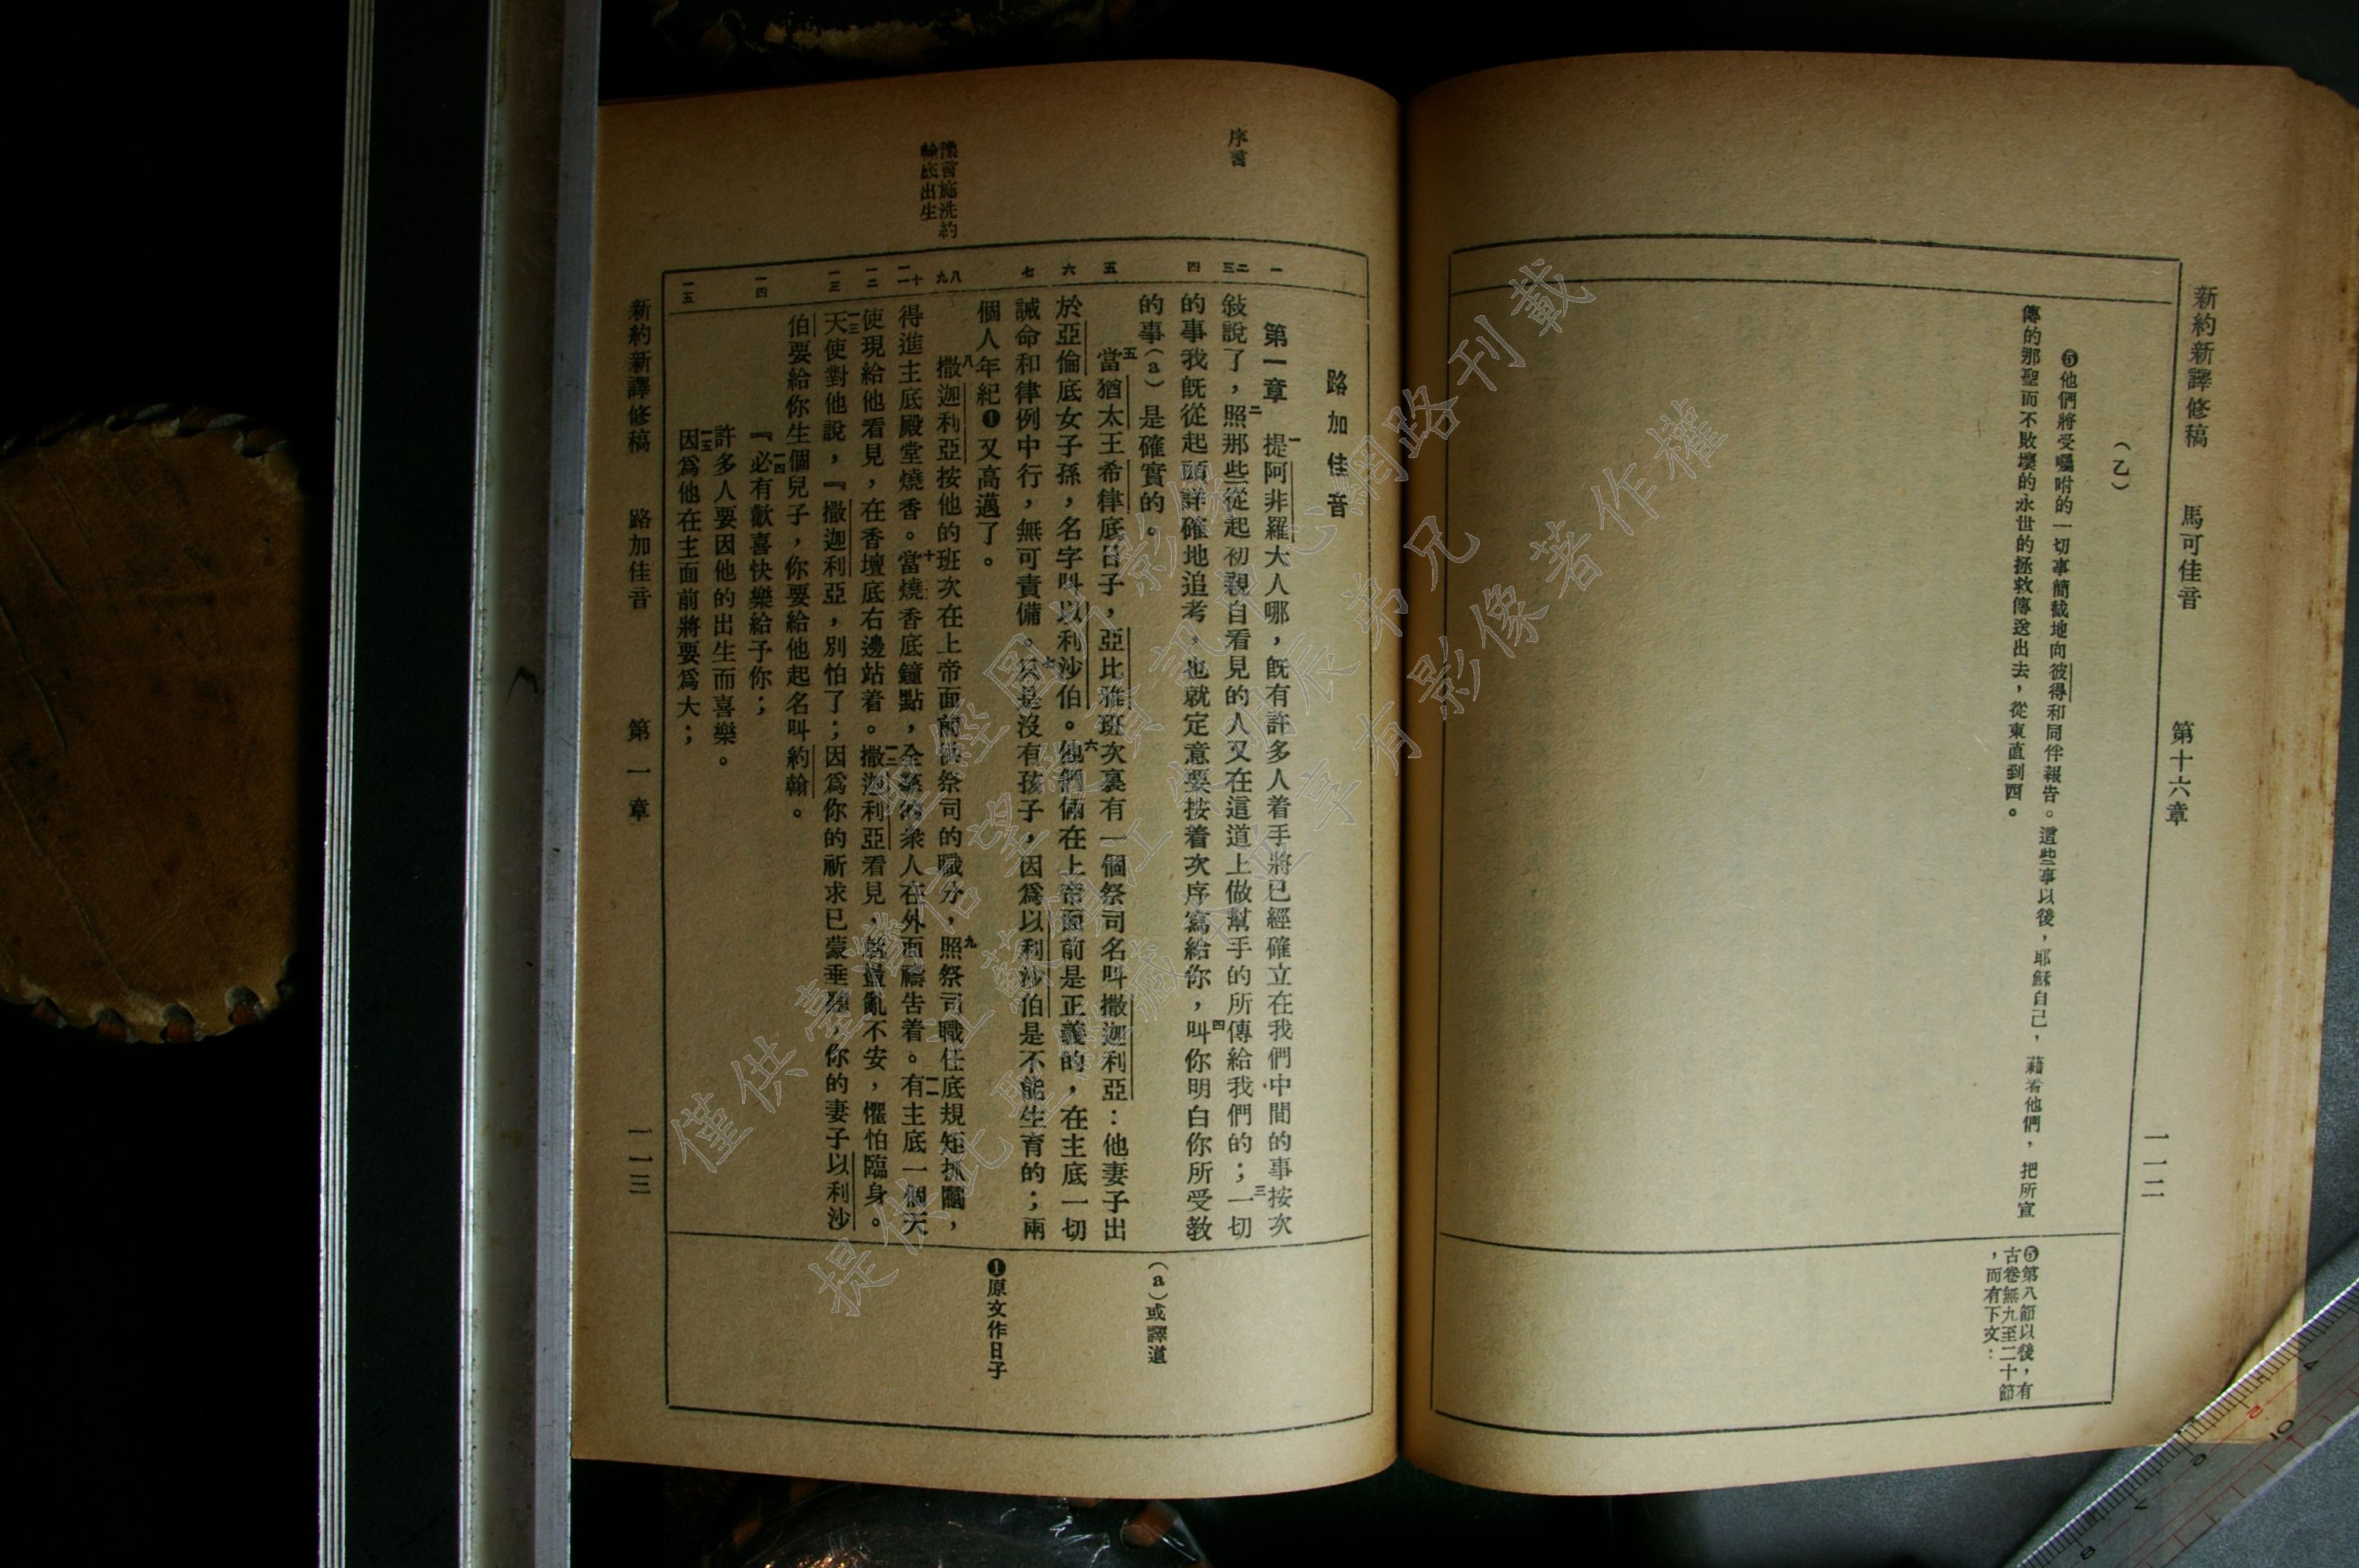 新約新譯修稿　馬可佳音　第十六章　一一二
（乙）
❺他們將受囑咐的一切事簡截地向彼得和同伴報告。這些事以後，耶穌自己，藉着他們，把所宣
傳的那聖而不敗壞的永世的拯救傳送出去，從東直到西。
❺第八節以後，有
古卷無九至二十節
，而有下文：
路加佳音
序言
一
第一章　一提阿非羅大人哪，旣有許多人着手將已經確立在我們中間的事按次
二三
敍說了，二照那些從起初親自看見的人又在這道上做幫手的所傳給我們的；三一切
四
的事我旣從起頭詳確地追考，也就定意要按着次序寫給你，四叫你明白你所受教
的事（a）是確實的。
（a）或譯道
五
五當猶太王希律底日子，亞比雅班次裏有一個祭司名叫撒迦利亞：他妻子出
六
於亞倫底女子孫，名字叫以利沙伯。六他們倆在上帝面前是正義的，在主底一切
七
誡命和律例中行，無可責備。七只是沒有孩子，因爲以利沙伯是不能生育的；兩
個人年紀❶又高邁了。
❶原文作日子
施洗約
翰底出生
八九
八撒迦利亞按他的班次在上帝面前供祭司的職分，九照祭司職任底規矩抓鬮，
十一一
得進主底殿堂燒香。十當燒香底鐘點，全羣的衆人在外面禱告着。一一有主底一個天
一二
使現給他看見，在香壇底右邊站着。一二撒迦利亞看見，就驚亂不安，懼怕臨身。
一三
一三天使對他說，『撒迦利亞，別怕了；因爲你的祈求已蒙垂聽，你的妻子以利沙
伯要給你生個兒子，你要給他起名叫約翰。
一四
一四『必有歡喜快樂給予你；
許多人要因他的出生而喜樂。
一五
一五因爲他在主面前將要爲大；
新約新譯修稿　路加佳音　第一章　一一三
僅供臺灣信望
提供此聖
網路刊載
享有影像著作權